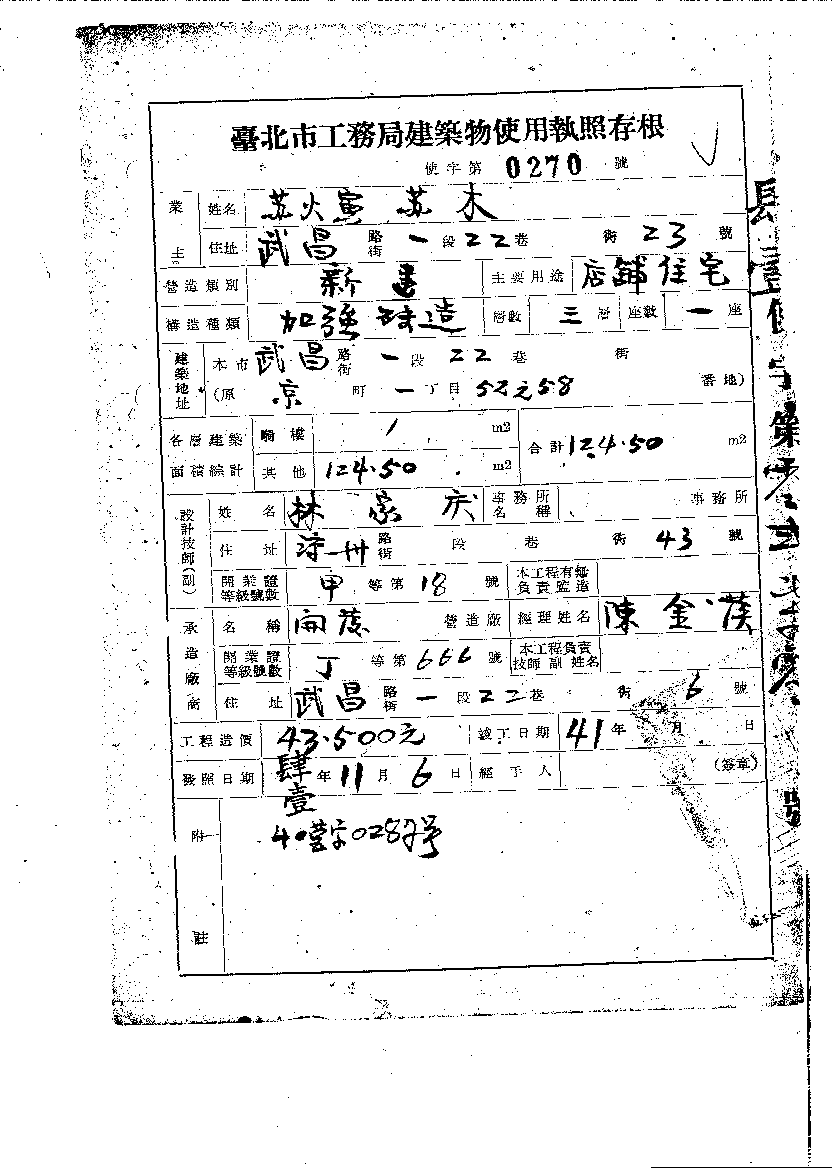 臺北市工務局建築物使用執照存根
使字第 0270 號
業主 姓名 苏火寅 苏木
住址 武昌 路街 一 段 22 巷 街 23 號
營造類別 新建 主要用途 店鋪住宅
構造種類 加強磚造 層數 三 層 座數 一 座
建築地址 本市 武昌 路街 一 段 22 巷 街
(原 京 町 一 丁目 52之58 番地)
各層建築面積綜計 騎樓 / m2 合計 124.50 m2
其他 124.50 m2
設計技師(副) 姓名 林家庆 事務所名稱 事務所
住址 漳州 路街 段 巷 街 43 號
開業證等級號數 甲 等第 18 號 本工程有無負責監造
承造廠商 名稱 開茂 營造廠 經理姓名 陳金
開業證等級號數 丁 等第 666 號 本工程負責技師副姓名
住址 武昌 路街 一 段 22 巷 街 6 號
工程造價 43.500元 竣工日期 41 年 月 日
發照日期 肆壹 年 11 月 6 日 經手人 (簽章)
附註 40营字0287号
使字第零貳柒零號